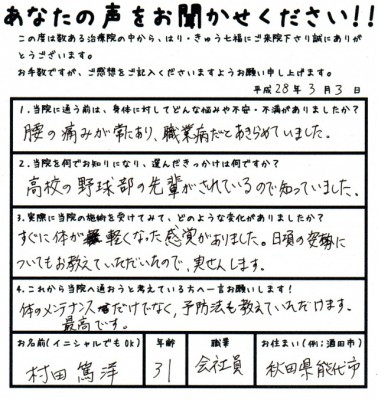 あなたの声をお聞かせください!!
この度は数ある治療院の中から、はり・きゅう七福にご来院下さり誠にありが
とうございます。
お手数ですが、ご感想をご記入くださいますようお願い申し上げます。
平成28年3月3日
1.当院に通う前は、身体に対してどんな悩みや不安・不満がありましたか?
腰の痛みが常にあり、職業病だとあきらめていました。
2.当院を何でお知りになり、選んだきっかけは何ですか?
高校の野球部の先輩がされているので知っていました、
3.実際に当院の施術を受けてみて、どのような変化がありましたか?
すぐに体が軽くなった感覚がありました。日頃の姿勢に
ついてもお教えていただいたので、実せんします。
4.これから当院へ通おうと考えている方へ一言お願いします!
体のメンテナンスだけでなく、予防法も教えていただけます。
最高です。
お名前(イニシャルでもOK) 年齢 職業 お住まい(例:酒田市)
村田 篤洋 31 会社員 秋田県能代市